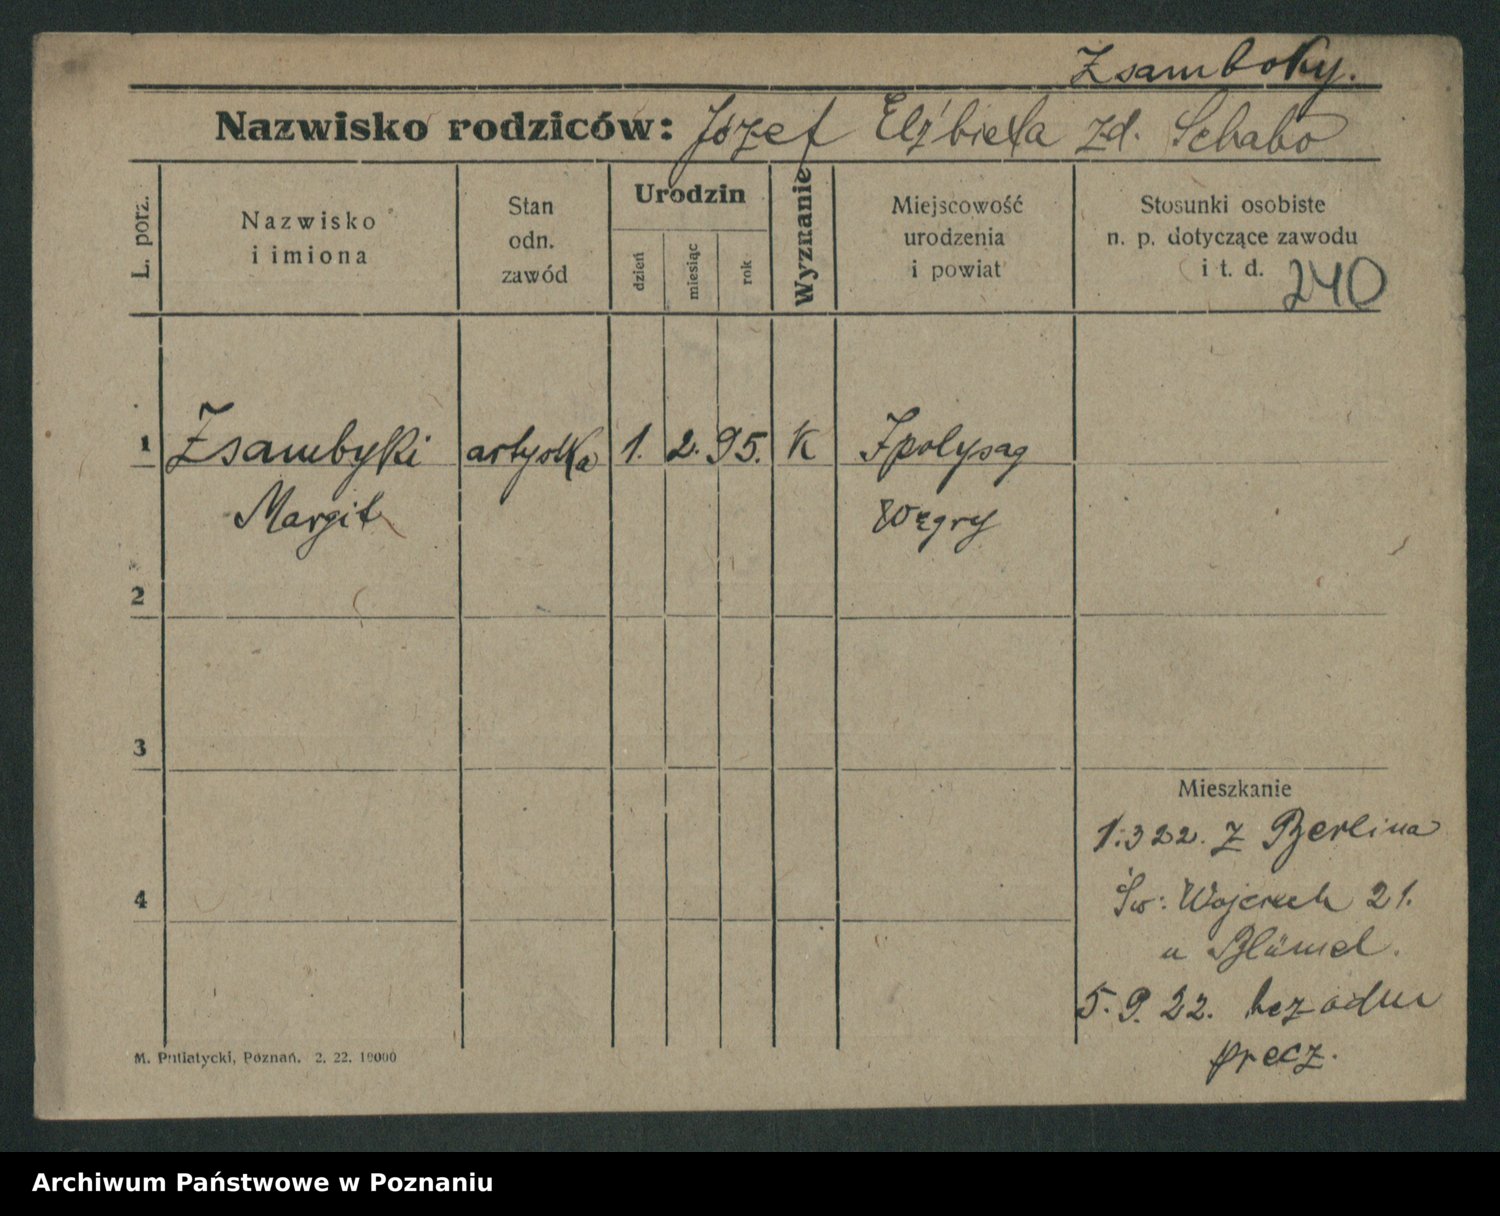 Zsamboky.
Nazwisko rodziców: Józef Elżbieta zd. Schabo
L. porz.
Nazwisko
i imiona
Stan
odn.
zawód
Urodzin
dzień
miesiąc
rok
Wyznanie
Miejscowość
urodzenia
i powiat
Stosunki osobiste
n. p. dotyczące zawodu
i t. d. 240
1 Zsambyki artystka 1. 2. 95. K Ipolysag
Margit Węgry
2
3
Mieszkanie
1.3 22. z Berlina
4
Św: Wojciech 21.
u Blümel.
5. 9. 22. bez odm
precz.
M. Putiatycki, Poznań. 2. 22. 10000
Archiwum Państwowe w Poznaniu